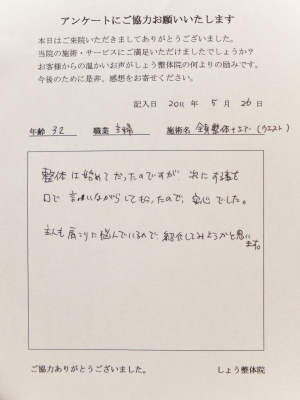 アンケートにご協力お願いいたします
本日はご来院いただきましてありがとうございました。
当院の施術・サービスにご満足いただけましたでしょうか？
お客様からの温かいお声がしょう整体院の何よりの励みです。
今後のために是非、感想をお寄せください。
記入日 2011 年 5 月 26 日
年齢 32 職業 主婦 施術名 全身整体 (ウエスト)
整体は始めてだったのですが、次にする事を
口で言いながらしてもらったので、安心でした。
主人も肩こりに悩んでいるので、紹介してみようかと思い
ます。
ご協力ありがとうございました。 しょう整体院